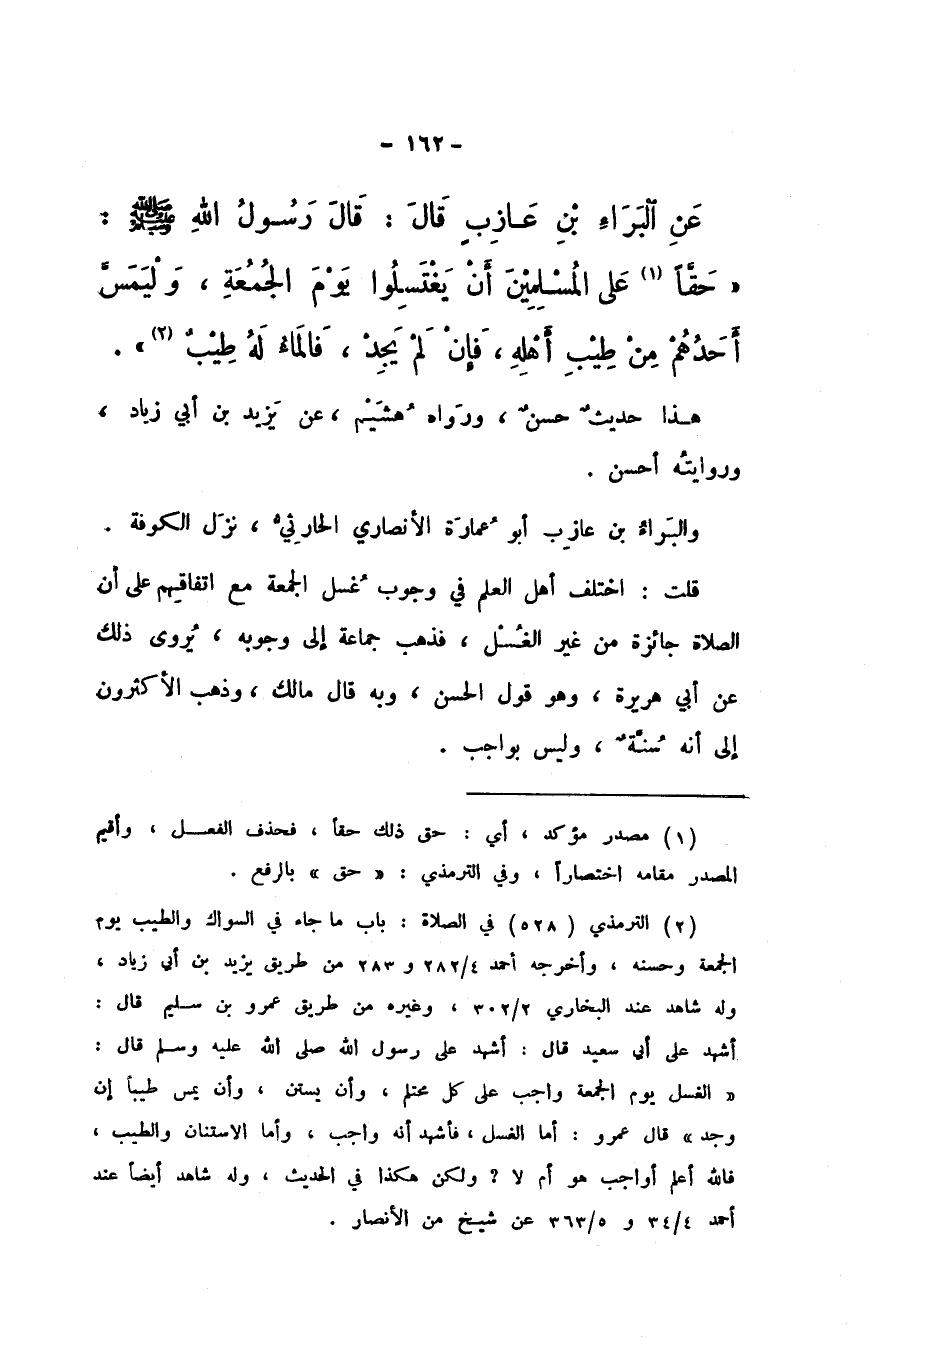 - ١٦٢ -
عَنِ ٱلْبَرَاءِ بْنِ عَـازِبٍ قَالَ : قَالَ رَسُـولُ اللهِ ﷺ :
« حَقَّاً (١) عَلى المُسْـلِمِيْنَ أَنْ يَغْتَسِلُوا يَوْمَ الجُمُعَةِ ، وَلْيَمَسَّ
أَحَدُهُمْ مِنْ طِيْبِ أَهْلِهِ ، فَإِنْ لَمْ يَجِدْ ، فَالمَاءُ لَهُ طِيْبٌ (٢) » .
هـذا حديثٌ حسنٌ ، ورَواه هُشَيْم ، عن يَزيد بن أبي زياد ،
وروايتُه أحسن .
والبَراءُ بن عازِب أبو عُمارَة الأنصاري الحارِثيُّ ، نزَل الكوفة .
قلت : اختلف أهل العلم في وجوب غُسل الجمعة مع اتفاقِهم على أن
الصلاة جائزة من غير الغُسْل ، فذهب جماعة إلى وجوبه ، يُروى ذلك
عن أبي هريرة ، وهو قول الحسن ، وبه قال مالك ، وذهب الأكثرون
إلى أنه سُنَّةٌ ، وليس بواجب .
(١) مصدر مؤكد ، أي : حق ذلك حقاً ، فحذف الفعـــل ، وأقيم
المصدر مقامه اختصاراً ، وفي الترمذي : « حق » بالرفع .
(٢) الترمذي ( ٥٢٨ ) في الصلاة : باب ما جاء في السواك والطيب يوم
الجمعة وحسنه ، وأخرجه أحمد ٢٨٢/٤ و ٢٨٣ من طريق يزيد بن أبي زياد ،
وله شاهد عند البخاري ٣٠٢/٢ ، وغيره من طريق عمرو بن سـليم قال :
أشهد على أبي سعيد قال : أشهد على رسول الله صلى الله عليه وسـلم قال :
« الغسل يوم الجمعة واجب على كل محتلم ، وأن يستن ، وأن يمس طيباً إن
وجد » قال عمرو : أما الغسل ، فأشهد أنه واجب ، وأما الاستنان والطيب ،
فالله أعلم أواجب هو أم لا ؟ ولكن هكذا في الحديث ، وله شاهد أيضاً عند
أحمد ٣٤/٤ و ٣٦٣/٥ عن شيـخ من الأنصار .